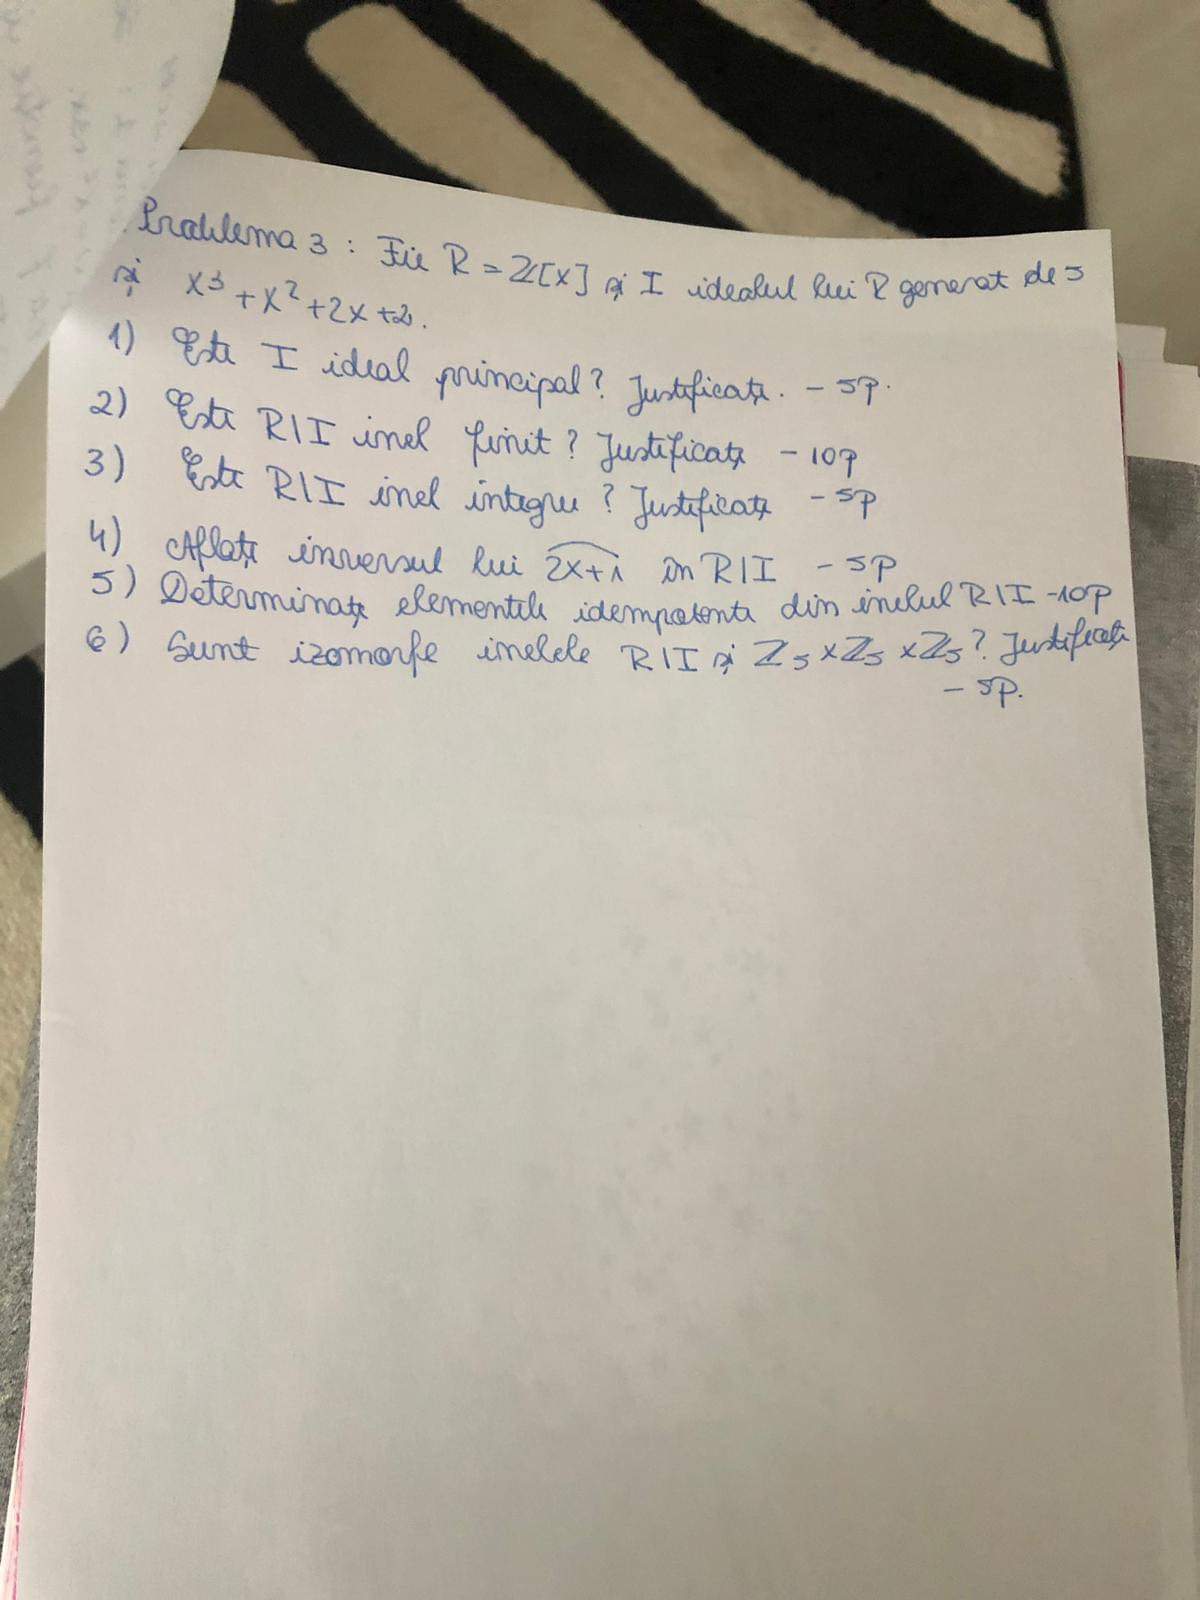 Problema 3: Fie R = Z[x] și I idealul lui R generat de 5
și x³ + x² + 2x + 2.
1) Este I ideal principal? Justificați. - 5p.
2) Este R/I inel finit? Justificați - 10p
3) Este R/I inel integru? Justificați - 5p
4) Aflați inversul lui 2x+1 în R/I - 5p
5) Determinați elementele idempotente din inelul R/I - 10p
6) Sunt izomorfe inelele R/I și Z₅ × Z₅ × Z₅? Justificați
- 5p.